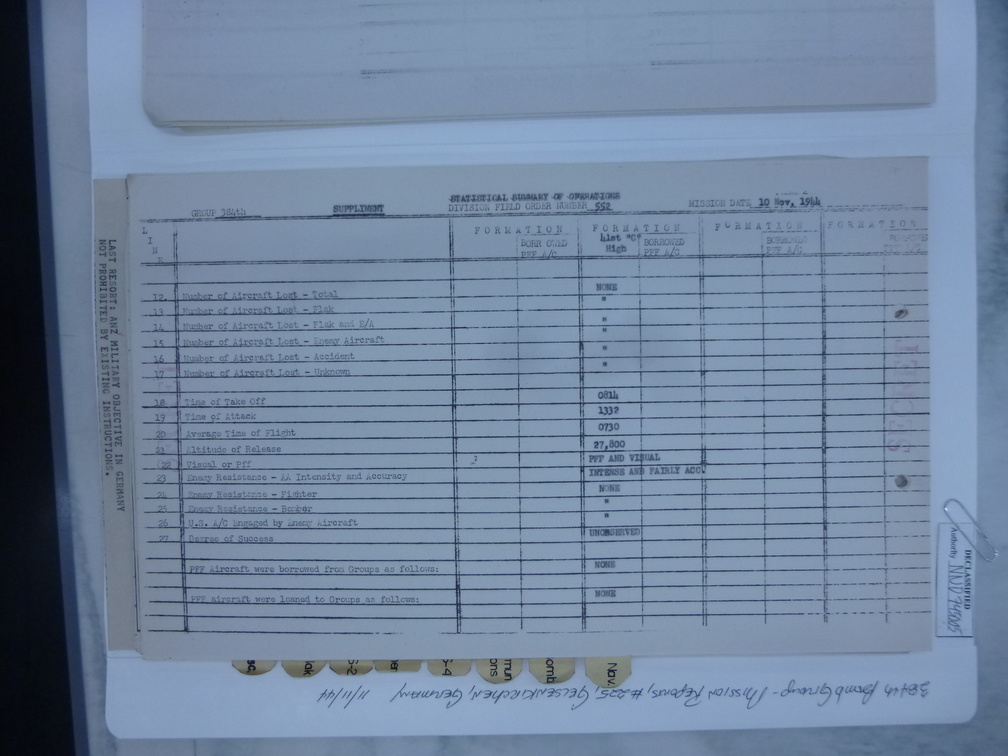 STATISTICAL SUMMARY OF OPERATIONS
GROUP 384th SUPPLIMENT DIVISION FIELD ORDER NUMBER 552 MISSION DATE 10 Nov, 1944
L I N E
FORMATION FORMATION FORMATION FORMATION
BORROWED PFF A/C 41st "C" High BORROWED PFF A/C BORROWED PFF A/C
12. Number of Aircraft Lost - Total NONE
13 Number of Aircraft Lost - Flak "
14 Number of Aircraft Lost - Flak and E/A "
15 Number of Aircraft Lost - Enemy Aircraft "
16 Number of Aircraft Lost - Accident "
17 Number of Aircraft Lost - Unknown "
18 Time of Take Off 0814
19 Time of Attack 1332
20 Average Time of Flight 0730
21 Altitude of Release 27,800
22 Visual or Pff PFF AND VISUAL
23 Enemy Resistance - AA Intensity and Accuracy INTENSE AND FAIRLY ACC.
24 Enemy Resistance - Fighter NONE
25 Enemy Resistance - Bomber "
26 U.S. A/C Engaged by Enemy Aircraft "
27 Degree of Success UNOBSERVED
PFF Aircraft were borrowed from Groups as follows: NONE
PFF Aircraft were loaned to Groups as follows: NONE
LAST RESORT: ANY MILITARY OBJECTIVE IN GERMANY
NOT PROHIBITED BY EXISTING INSTRUCTIONS.
DECLASSIFIED
Authority
Nav
384th Bomb Group - Mission Reports, #225, Gelsenkirchen, Germany 11/11/44